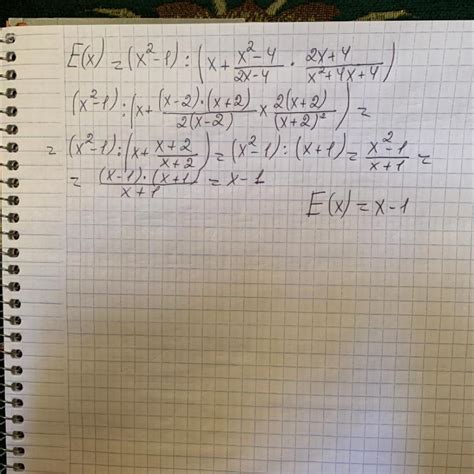 E(x) = (x²-1) : (x + \frac{x²-4}{2x-4} · \frac{2x+4}{x²+4x+4})
(x²-1) : (x + \frac{(x-2)·(x+2)}{2(x-2)} x \frac{2(x+2)}{(x+2)²}) =
= (x²-1) : (x + \frac{x+2}{x+2}) = (x²-1) : (x+1) = \frac{x²-1}{x+1} =
= \frac{(x-1)·(x+1}{x+1} = x-1
E(x) = x-1